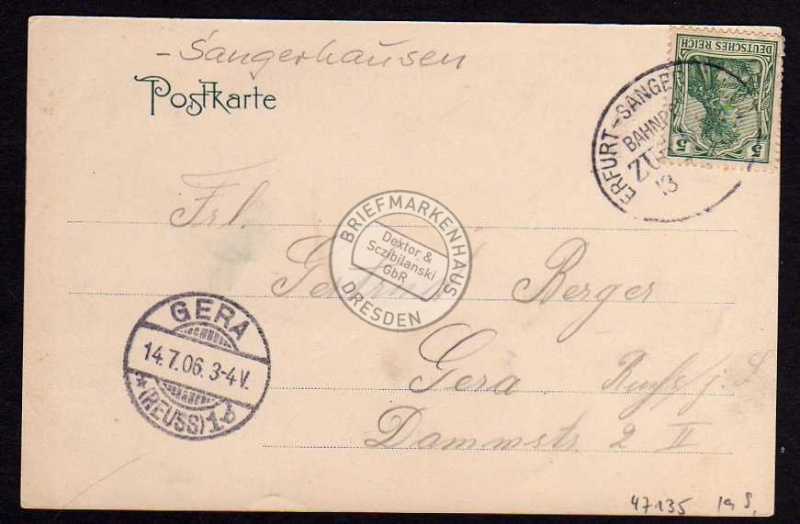 - Sangerhausen
Postkarte
DEUTSCHES REICH
5 5
ERFURT-SANGE
BAHNP
ZU
13
Frl.
Gertrud Berger
Gera Reuß j. L.
Dammstr. 2 II
BRIEFMARKENHAUS
Dektor &
Sczibilanski
GbR
DRESDEN
GERA
14.7.06. 3-4 V.
* (REUSS) 1 b
47135